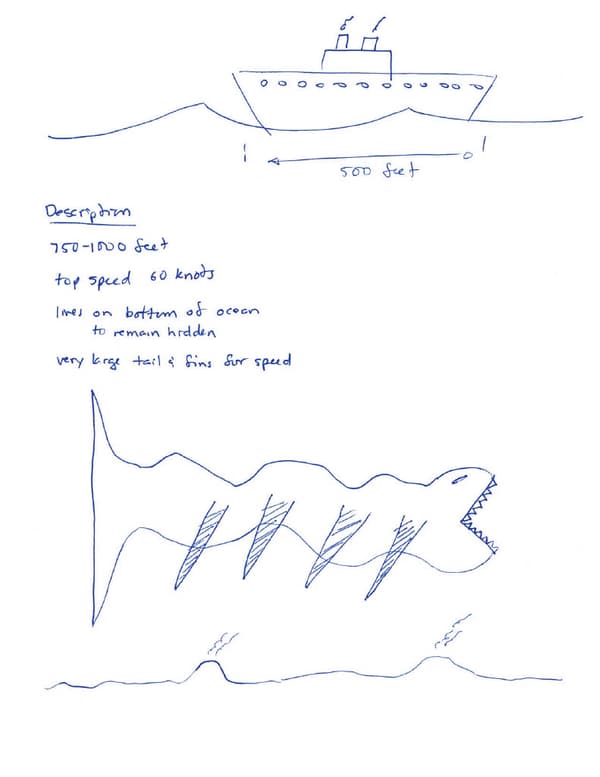 500 feet
Description
750-1000 feet
top speed 60 knots
lives on bottom of ocean
to remain hidden
very large tail & fins for speed